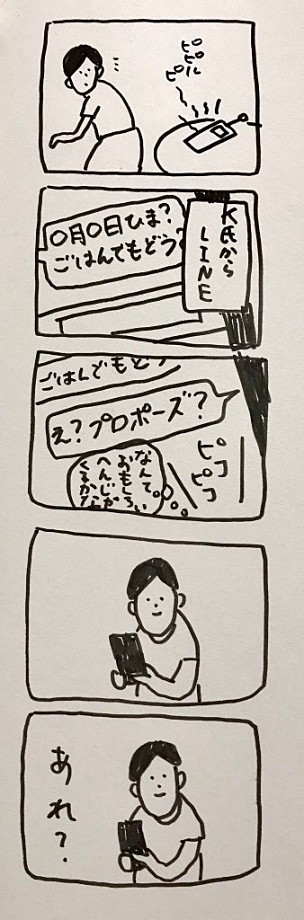 ピピルピ
K氏から
LINE
〇月〇日ひま?
ごはんでもどう?
ごはんでもどう
え?プロポーズ?
ピコピコ
なんて。
おもしろい
へんじが
くるかな
あれ?